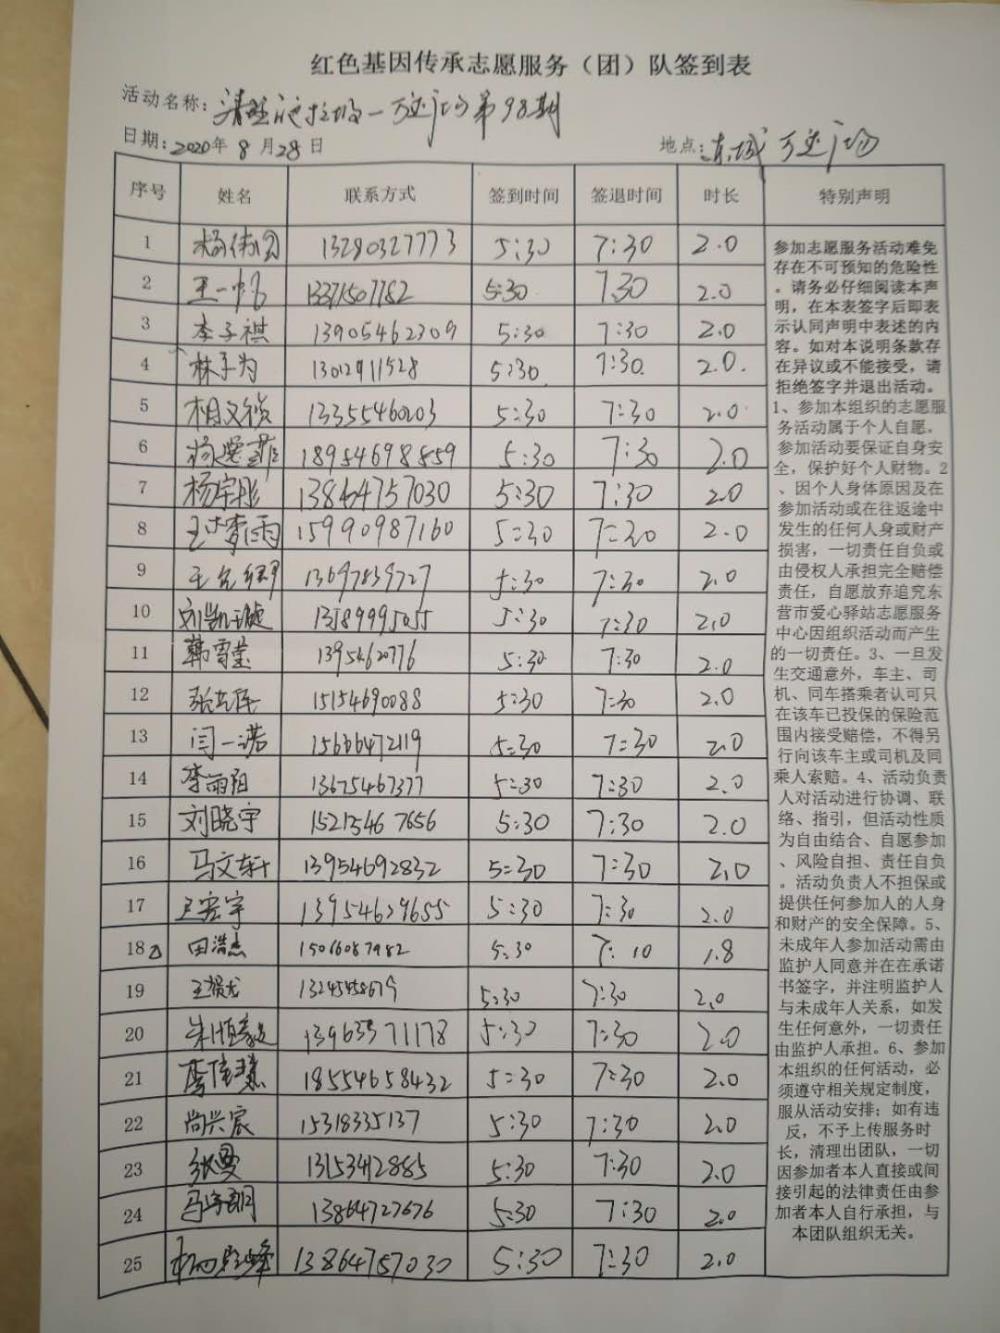 红色基因传承志愿服务（团）队签到表
活动名称：清整泛垃圾一万达广场第98期
日期：2020年8月28日 地点：东城万达广场
序号 姓名 联系方式 签到时间 签退时间 时长 特别声明
1 13280327773 5:30 7:30 2.0
2 王一帆 13371507782 5:30 7:30 2.0
3 李子祺 13905462309 5:30 7:30 2.0
4 林子为 13012911528 5:30 7:30 2.0.
5 相文祯 13355460203 5:30 7:30 2.0
6 18954698859 5:30 7:30 2.0
7 杨宇彤 13864757030 5:30 7:30 2.0
8 王梦雨 15990987160 5:30 7:30 2.0
9 13697839727 5:30 7:30 2.0
10 刘凯璇 13589995055 5:30 7:30 2.0
11 韩雪莹 13954620776 5:30 7:30 2.0
12 15154690088 5:30 7:30 2.0
13 闫一诺 15666472119 5:30 7:30 2.0
14 李雨阳 13675467377 5:30 7:30 2.0
15 刘晓宇 15215467656 5:30 7:30 2.0
16 马文轩 13954692832 5:30 7:30 2.0
17 王宏宇 13954629655 5:30 7:30 2.0
18 田浩杰 15066087982 5:30 7:10 1.8
19 5:30 7:30 2.0
20 朱恒毅 13963571178 5:30 7:30 2.0
21 李佳慧 18554658432 5:30 7:30 2.0
22 尚兴宸 15318335137 5:30 7:30 2.0
23 张曼 13153412885 5:30 7:30 2.0
24 13864727676 5:30 7:30 2.0
25 13864757030 5:30 7:30 2.0
参加志愿服务活动难免
存在不可预知的危险性
。请务必仔细阅读本声
明，在本表签字后即表
示认同声明中表述的内
容。如对本说明条款存
在异议或不能接受，请
拒绝签字并退出活动。
1、参加本组织的志愿服
务活动属于个人自愿，
参加活动要保证自身安
全，保护好个人财物。2
、因个人身体原因及在
参加活动或在往返途中
发生的任何人身或财产
损害，一切责任自负或
由侵权人承担完全赔偿
责任，自愿放弃追究东
营市爱心驿站志愿服务
中心因组织活动而产生
的一切责任。3、一旦发
生交通意外，车主、司
机、同车搭乘者认可只
在该车已投保的保险范
围内接受赔偿，不得另
行向该车主或司机及同
乘人索赔。4、活动负责
人对活动进行协调、联
络、指引，但活动性质
为自由结合、自愿参加
、风险自担、责任自负
。活动负责人不担保或
提供任何参加人的人身
和财产的安全保障。5、
未成年人参加活动需由
监护人同意并在在承诺
书签字，并注明监护人
与未成年人关系，如发
生任何意外，一切责任
由监护人承担。6、参加
本组织的任何活动，必
须遵守相关规定制度，
服从活动安排；如有违
反，不予上传服务时
长，清理出团队，一切
因参加者本人直接或间
接引起的法律责任由参
加者本人自行承担，与
本团队组织无关。